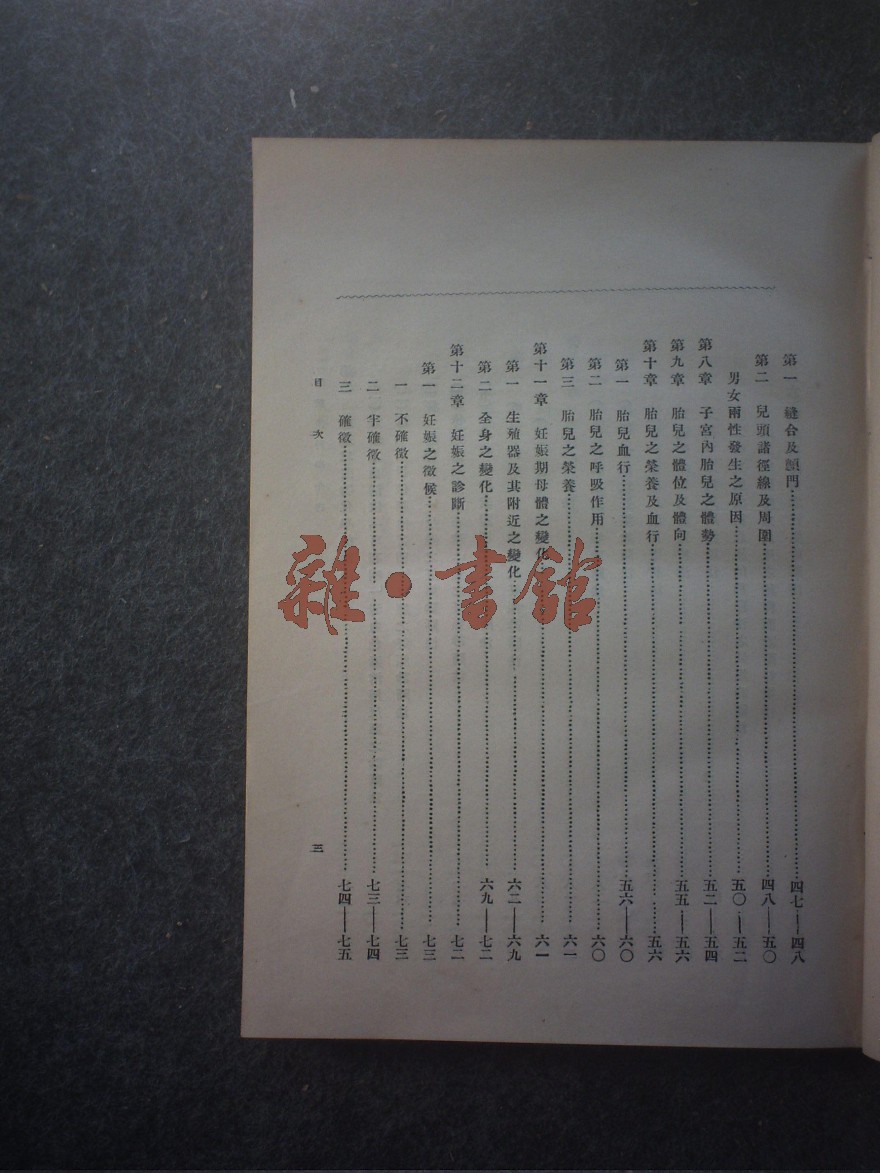 第一　縫合及顖門……四七——四八
第二　兒頭諸徑線及周圍……四八——五〇
男女兩性發生之原因……五〇——五二
第八章　子宮內胎兒之體勢……五二——五四
第九章　胎兒之體位及體向……五五——五六
第十章　胎兒之榮養及血行……五六
第一　胎兒血行……五六——六〇
第二　胎兒之呼吸作用……六〇
第三　胎兒之榮養……六一
第十一章　妊娠期母體之變化……六一
第一　生殖器及其附近之變化……六二——六九
第二　全身之變化……六九——七二
第十二章　妊娠之診斷……七二
第一　妊娠之徵候……七三
一　不確徵……七三
二　半確徵……七三——七四
三　確徵……七四——七五
目次　三
雜·書館